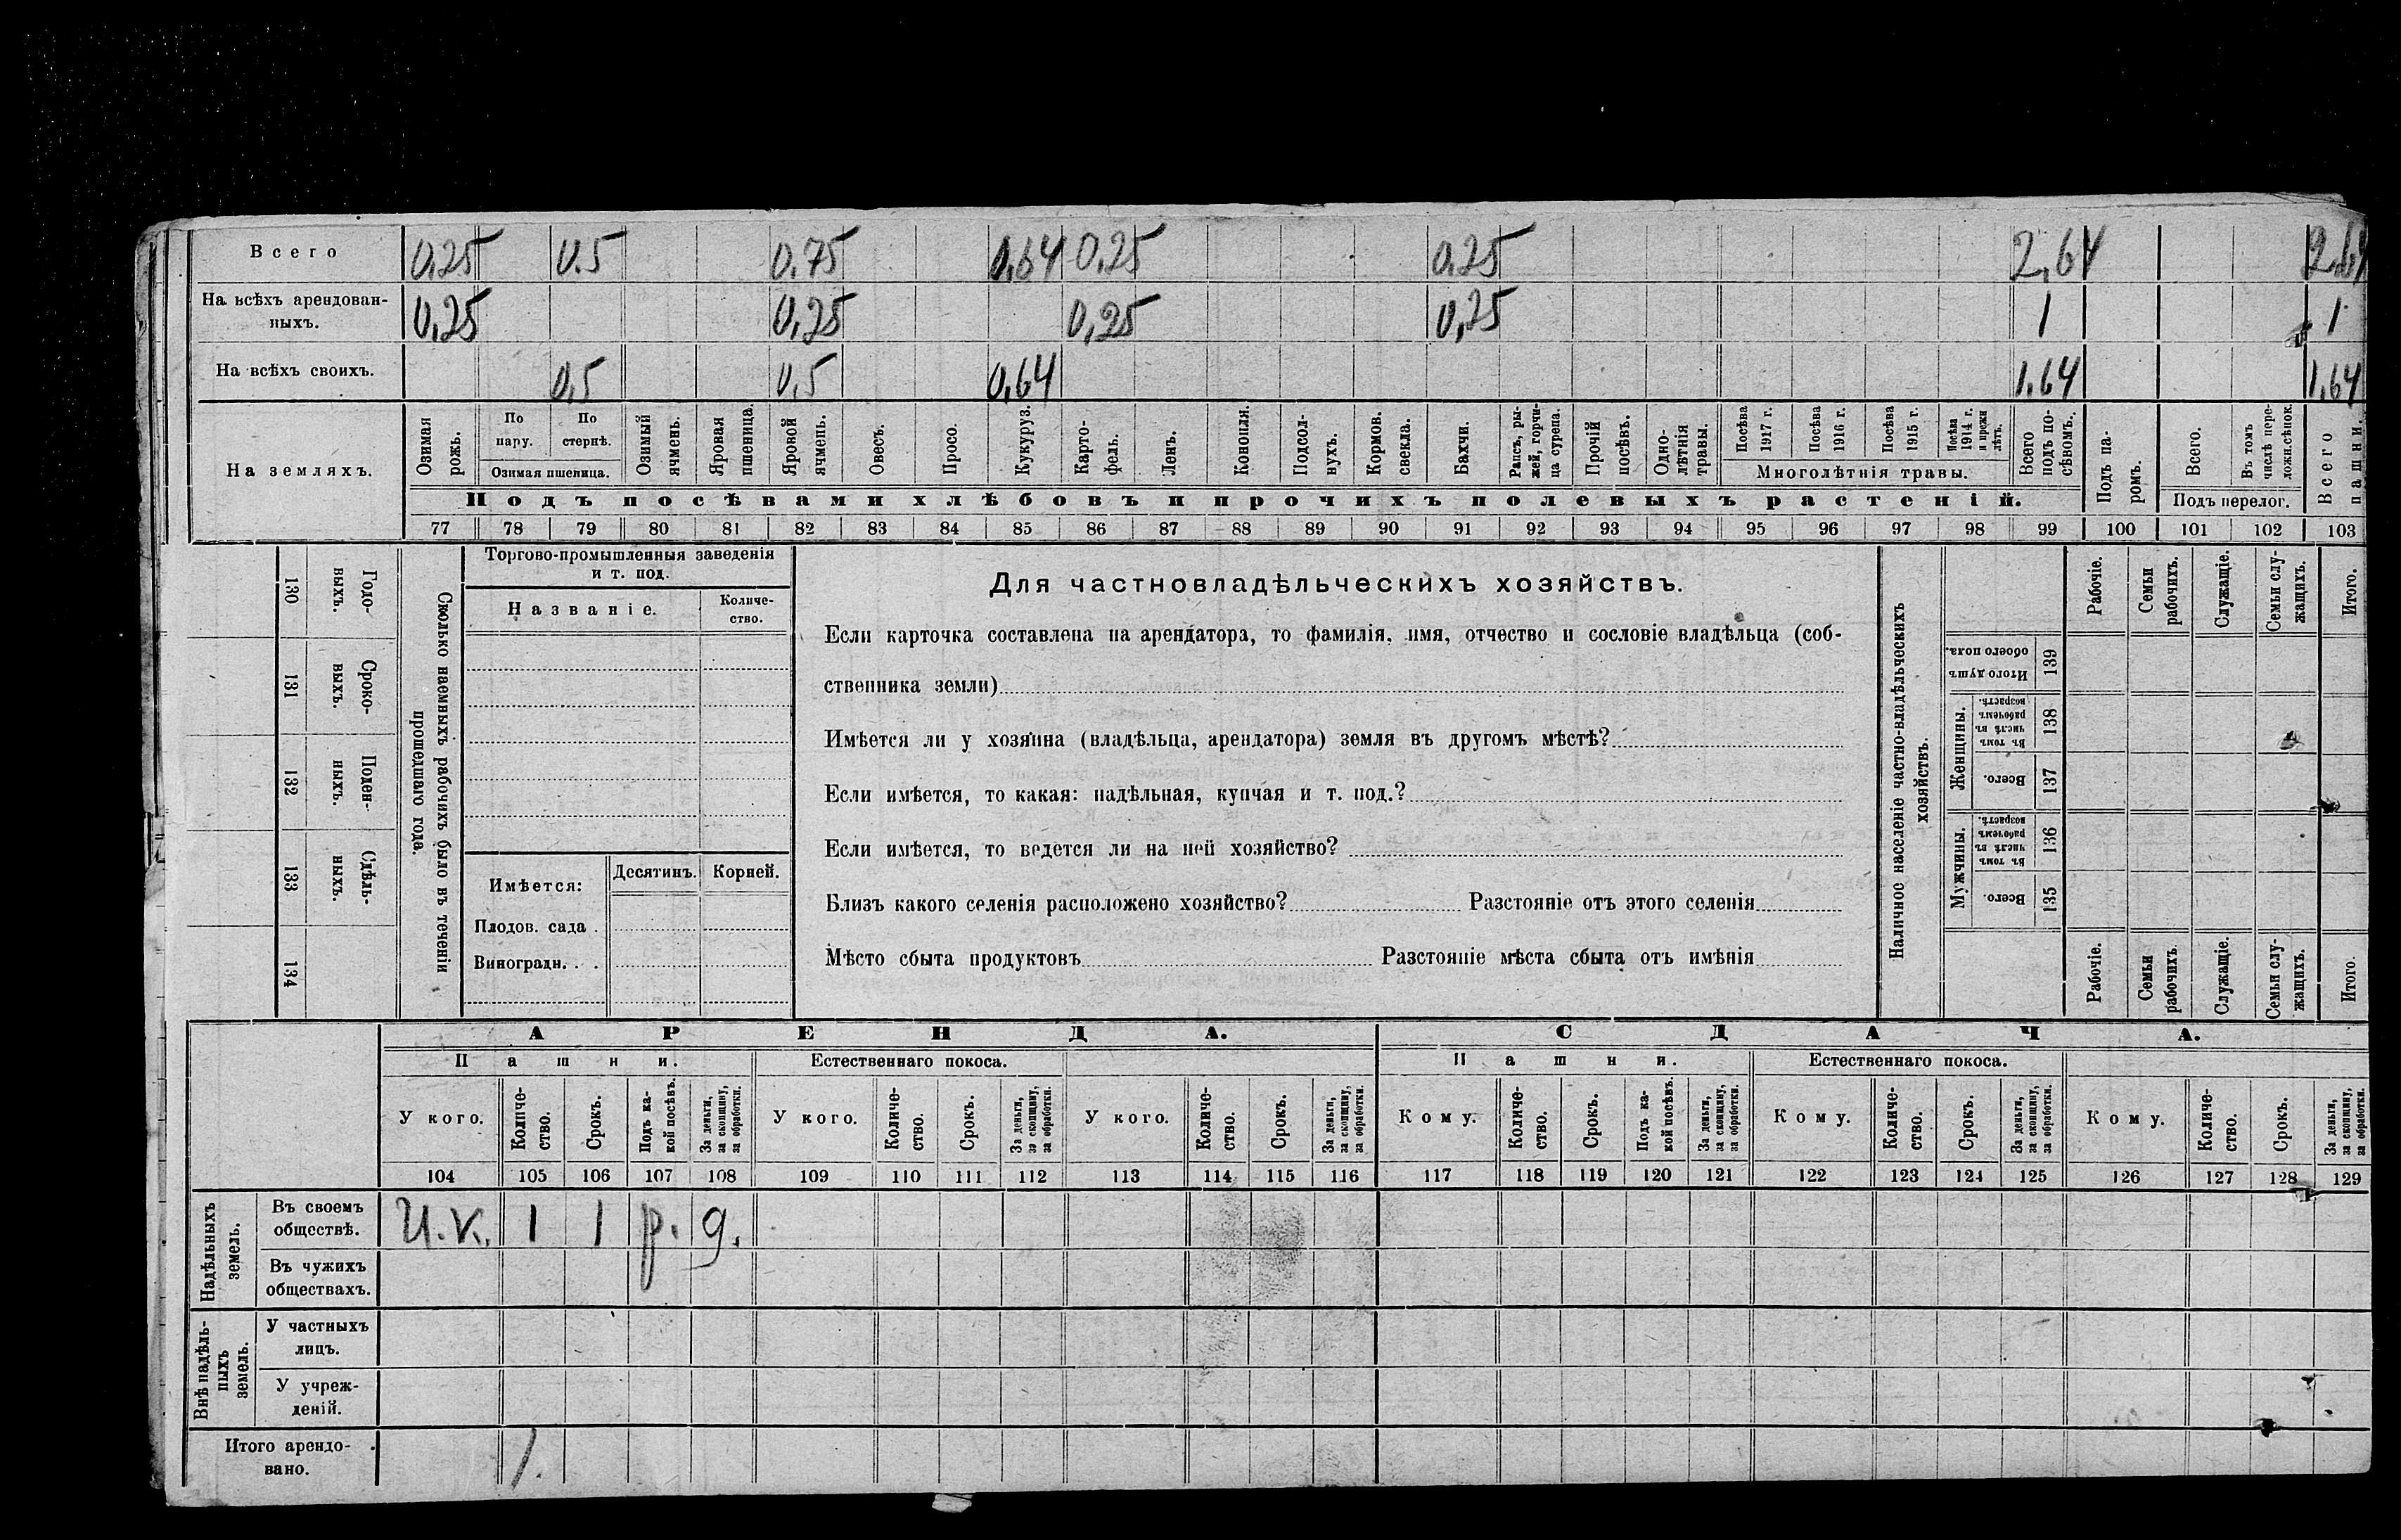 Всего 0,25 0.5 0.75 0,64 0,25 0.25 2,64 2,64
На всѣхъ арендован-
ныхъ. 0,25 0,25 0,25 0,25 1 1
На всѣхъ своихъ. 0,5 0,5 0,64 1.64 1.64
На земляхъ.
Озимая рожь.
По пару.
По стернѣ.
Озимая пшеница.
Озимый ячмень.
Яровая пшеница.
Яровой ячмень.
Овесъ.
Просо.
Кукуруз.
Карто-
фель.
Ленъ.
Конопля.
Подсол-
нухъ.
Кормов. свекла.
Бахчи.
Рапсъ, ры-
жей, горчи-
ца сурепа.
Прочій посѣвъ.
Одно-
лѣтнія травы.
Посѣва 1917 г.
Посѣва 1916 г.
Посѣва 1915 г.
Посѣва 1914 г. и прежн лѣтъ.
Многолѣтнія травы.
Всего подъ по-
сѣвомъ.
Подъ па-
ромъ.
Всего.
Въ томъ числѣ пере-
ложн.сѣнок.
Подъ перелог.
Всего пашни.
Подъ посѣвами хлѣбовъ и прочихъ полевыхъ растеній.
77 78 79 80 81 82 83 84 85 86 87 88 89 90 91 92 93 94 95 96 97 98 99 100 101 102 103
130 Годо-
выхъ.
131 Сроко-
выхъ.
132 Поден-
ныхъ.
133 Сдѣль-
ныхъ.
134
Сколько наемныхъ рабочихъ было въ теченіи
прошедшаго года.
Торгово-промышленныя заведенія
и т. под.
Названіе.
Количе-
ство.
Имѣется:
Десятинъ.
Корней.
Плодов. сада .
Виноградн. . .
Для частновладѣльческихъ хозяйствъ.
Если карточка составлена на арендатора, то фамилія, имя, отчество и сословіе владѣльца (соб-
ственника земли)
Имѣется ли у хозяина (владѣльца, арендатора) земля въ другомъ мѣстѣ?
Если имѣется, то какая: надѣльная, купчая и т. под.?
Если имѣется, то ведется ли на ней хозяйство?
Близъ какого селенія расположено хозяйство? Разстояніе отъ этого селенія
Мѣсто сбыта продуктовъ Разстояніе мѣста сбыта отъ имѣнія
Наличное населеніе частно-владѣльческихъ
хозяйствъ.
Рабочіе.
Семьи рабочихъ.
Служащіе.
Семьи слу-
жащихъ.
Итого.
Итого душъ обоего пола. 139
Женщины.
Въ томъ числѣ въ рабочемъ возрастѣ. 138
Всего. 137
Мужчины.
Въ томъ числѣ въ рабочемъ возрастѣ. 136
Всего. 135
Рабочіе.
Семьи рабочихъ
Служащіе.
Семьи слу-
жащихъ.
Итого.
АРЕНДА. СДАЧА.
Пашни. Естественнаго покоса. Пашни. Естественнаго покоса.
У кого.
Количе-
ство.
Срокъ.
Подъ ка-
кой посѣвъ.
За деньги, за скопщину, за обработки.
У кого.
Количе-
ство.
Срокъ.
За деньги, за скопщину, за обработки.
У кого.
Количе-
ство.
Срокъ.
За деньги, за скопщину, за обработки.
Кому.
Количе-
ство.
Срокъ.
Подъ ка-
кой посѣвъ.
За деньги, за скопщину, за обработки.
Кому.
Количе-
ство.
Срокъ.
За деньги, за скопщину, за обработки.
Кому.
Количе-
ство.
Срокъ.
За деньги, за скопщину, за обработки.
104 105 106 107 108 109 110 111 112 113 114 115 116 117 118 119 120 121 122 123 124 125 126 127 128 129
Надѣльныхъ земель.
Въ своемъ
обществѣ. И.К. 1 1 р. д.
Въ чужихъ
обществахъ.
Внѣ надѣль-
ныхъ земель.
У частныхъ
лицъ.
У учреж-
деній.
Итого арендо-
вано. 1.